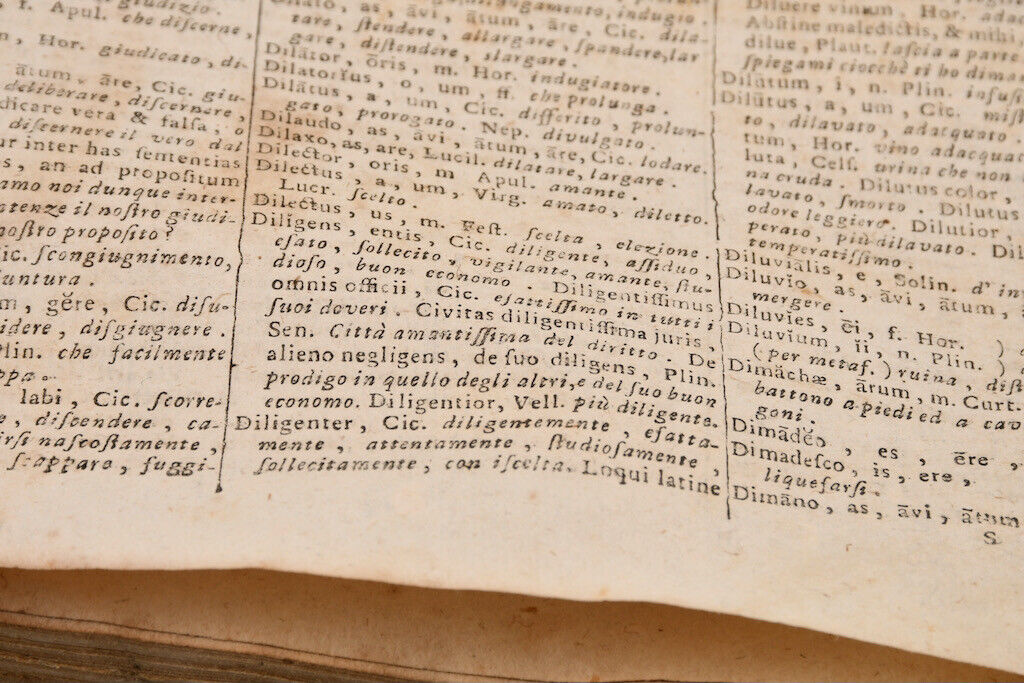 giudizio.
f. Apul. che discerne,
n, Hor. giudicato, di-
ātum, āre, Cic. giu-
deliberare, discernere,
dicare vera & falsa, o
discernere il vero dal
ur inter has sententias
s, an ad propositum
amo noi dunque inter-
tenze il nostro giudi-
nostro proposito?
ic. scongiugnimento,
untura.
m, gĕre, Cic. disu-
idere, disgiugnere.
lin. che facilmente
ppa.
labi, Cic. scorre-
e, discendere, ca-
irsi nascostamente,
scapparo, fuggi-
as, āvi, ātum, āre, Cic. dila-
tare, stendere, allargare, spandere, lar
gare, distendere, slargare.
Dilātor, ōris, m. Hor. indugiatore.
Dilatorius, o, um, ff. che prolunga.
Dilātus, a, um, Cic. differito, prolun-
gato, prorogato. Nep. divulgato.
Dilaudo, as, āvi, ātum, āre, Cic. lodare.
Dilaxo, as, are, Lucil. dilatare, largare.
Dilēctor, oris, m Apul. amante.
Dilectus, a, um, Virg. amato, diletto.
Lucr. scelto.
Dilectus, us, m. Fest. scelta, elezione.
Diligens, entis, Cic. diligente, assiduo,
esato, sollecito, vigilante, amante, stu-
dioso, buon economo. Diligentissimus
omnis officii, Cic. esattissimo in tutti i
suoi doveri. Civitas diligentissima juris,
Sen. Città amantissima del diritto. De
alieno negligens, de suo diligens, Plin.
prodigo in quello degli altri, e del suo buon
economo. Diligentior, Vell. più diligente.
Diligenter, Cic. diligentemente, esatta-
mente, attentamente, studiosamente,
sollecitamente, con iscelta. Loqui latine
Diluere vinum, Hor. adac
Abstine maledictis, & mihi
dilue, Plaut. lascia a parte
spiegami ciocchè ti ho dima
Dilūtum, i, n. Plin. infusi
Dilūtus, a, um, Cic. mist
to, dilavato, adacquato.
tum, Hor. vino adacqua
luta, Cels. urina che non
na cruda. Dilutus color,
lavato, smorto. Dilutus
odore leggiero. Dilutior,
perato, più dilavato. Dil
temperatissimo.
Diluviālis, e, Solin. d'in
Diluvio, as, āvi, ātum,
mergere.
Diluvies, ēi, f. Hor. )
Diluvium, ii, n. Plin. )
(per metaf.) ruina, dist
Dimāchæ, ārum, m. Curt.
battono a piedi ed a cav
goni.
Dimādĕo, es, ēre,
Dimadesco, is, ere,
liquefarsi.
Dimāno, as, āvi, ātum
S